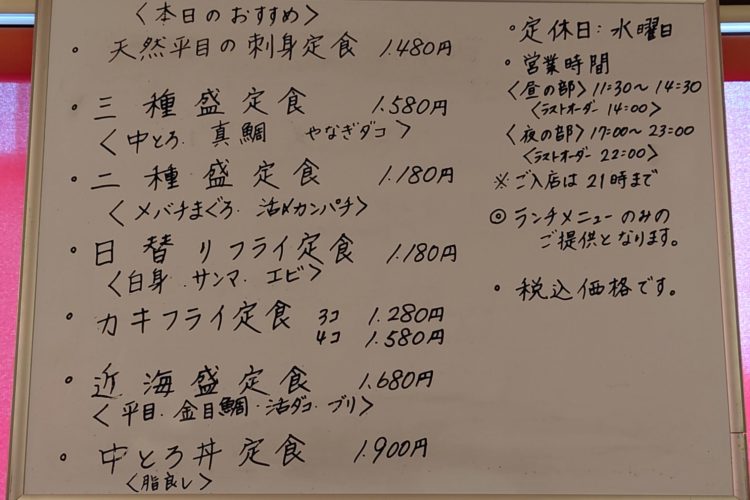 〈本日のおすすめ〉
・天然平目の刺身定食 1.480円
・三種盛定食 1.580円
〈中とろ. 真鯛 やなぎダコ〉
・二種盛定食 1.180円
〈メバチまぐろ. 活〆カンパチ〉
・日替りフライ定食 1.180円
〈白身.サンマ.エビ〉
・カキフライ定食 3コ 1.280円
4コ 1.580円
・近海盛定食 1.680円
〈平目.金目鯛.活ダコ.ブリ〉
・中とろ丼定食 1.900円
〈脂良し〉
・定休日:水曜日
・営業時間
〈昼の部〉11:30〜14:30
〈ラストオーダー 14:00〉
〈夜の部〉17:00〜23:00
〈ラストオーダー 22:00〉
※ご入店は21時まで
◎ランチメニューのみの
ご提供となります。
・税込価格です。